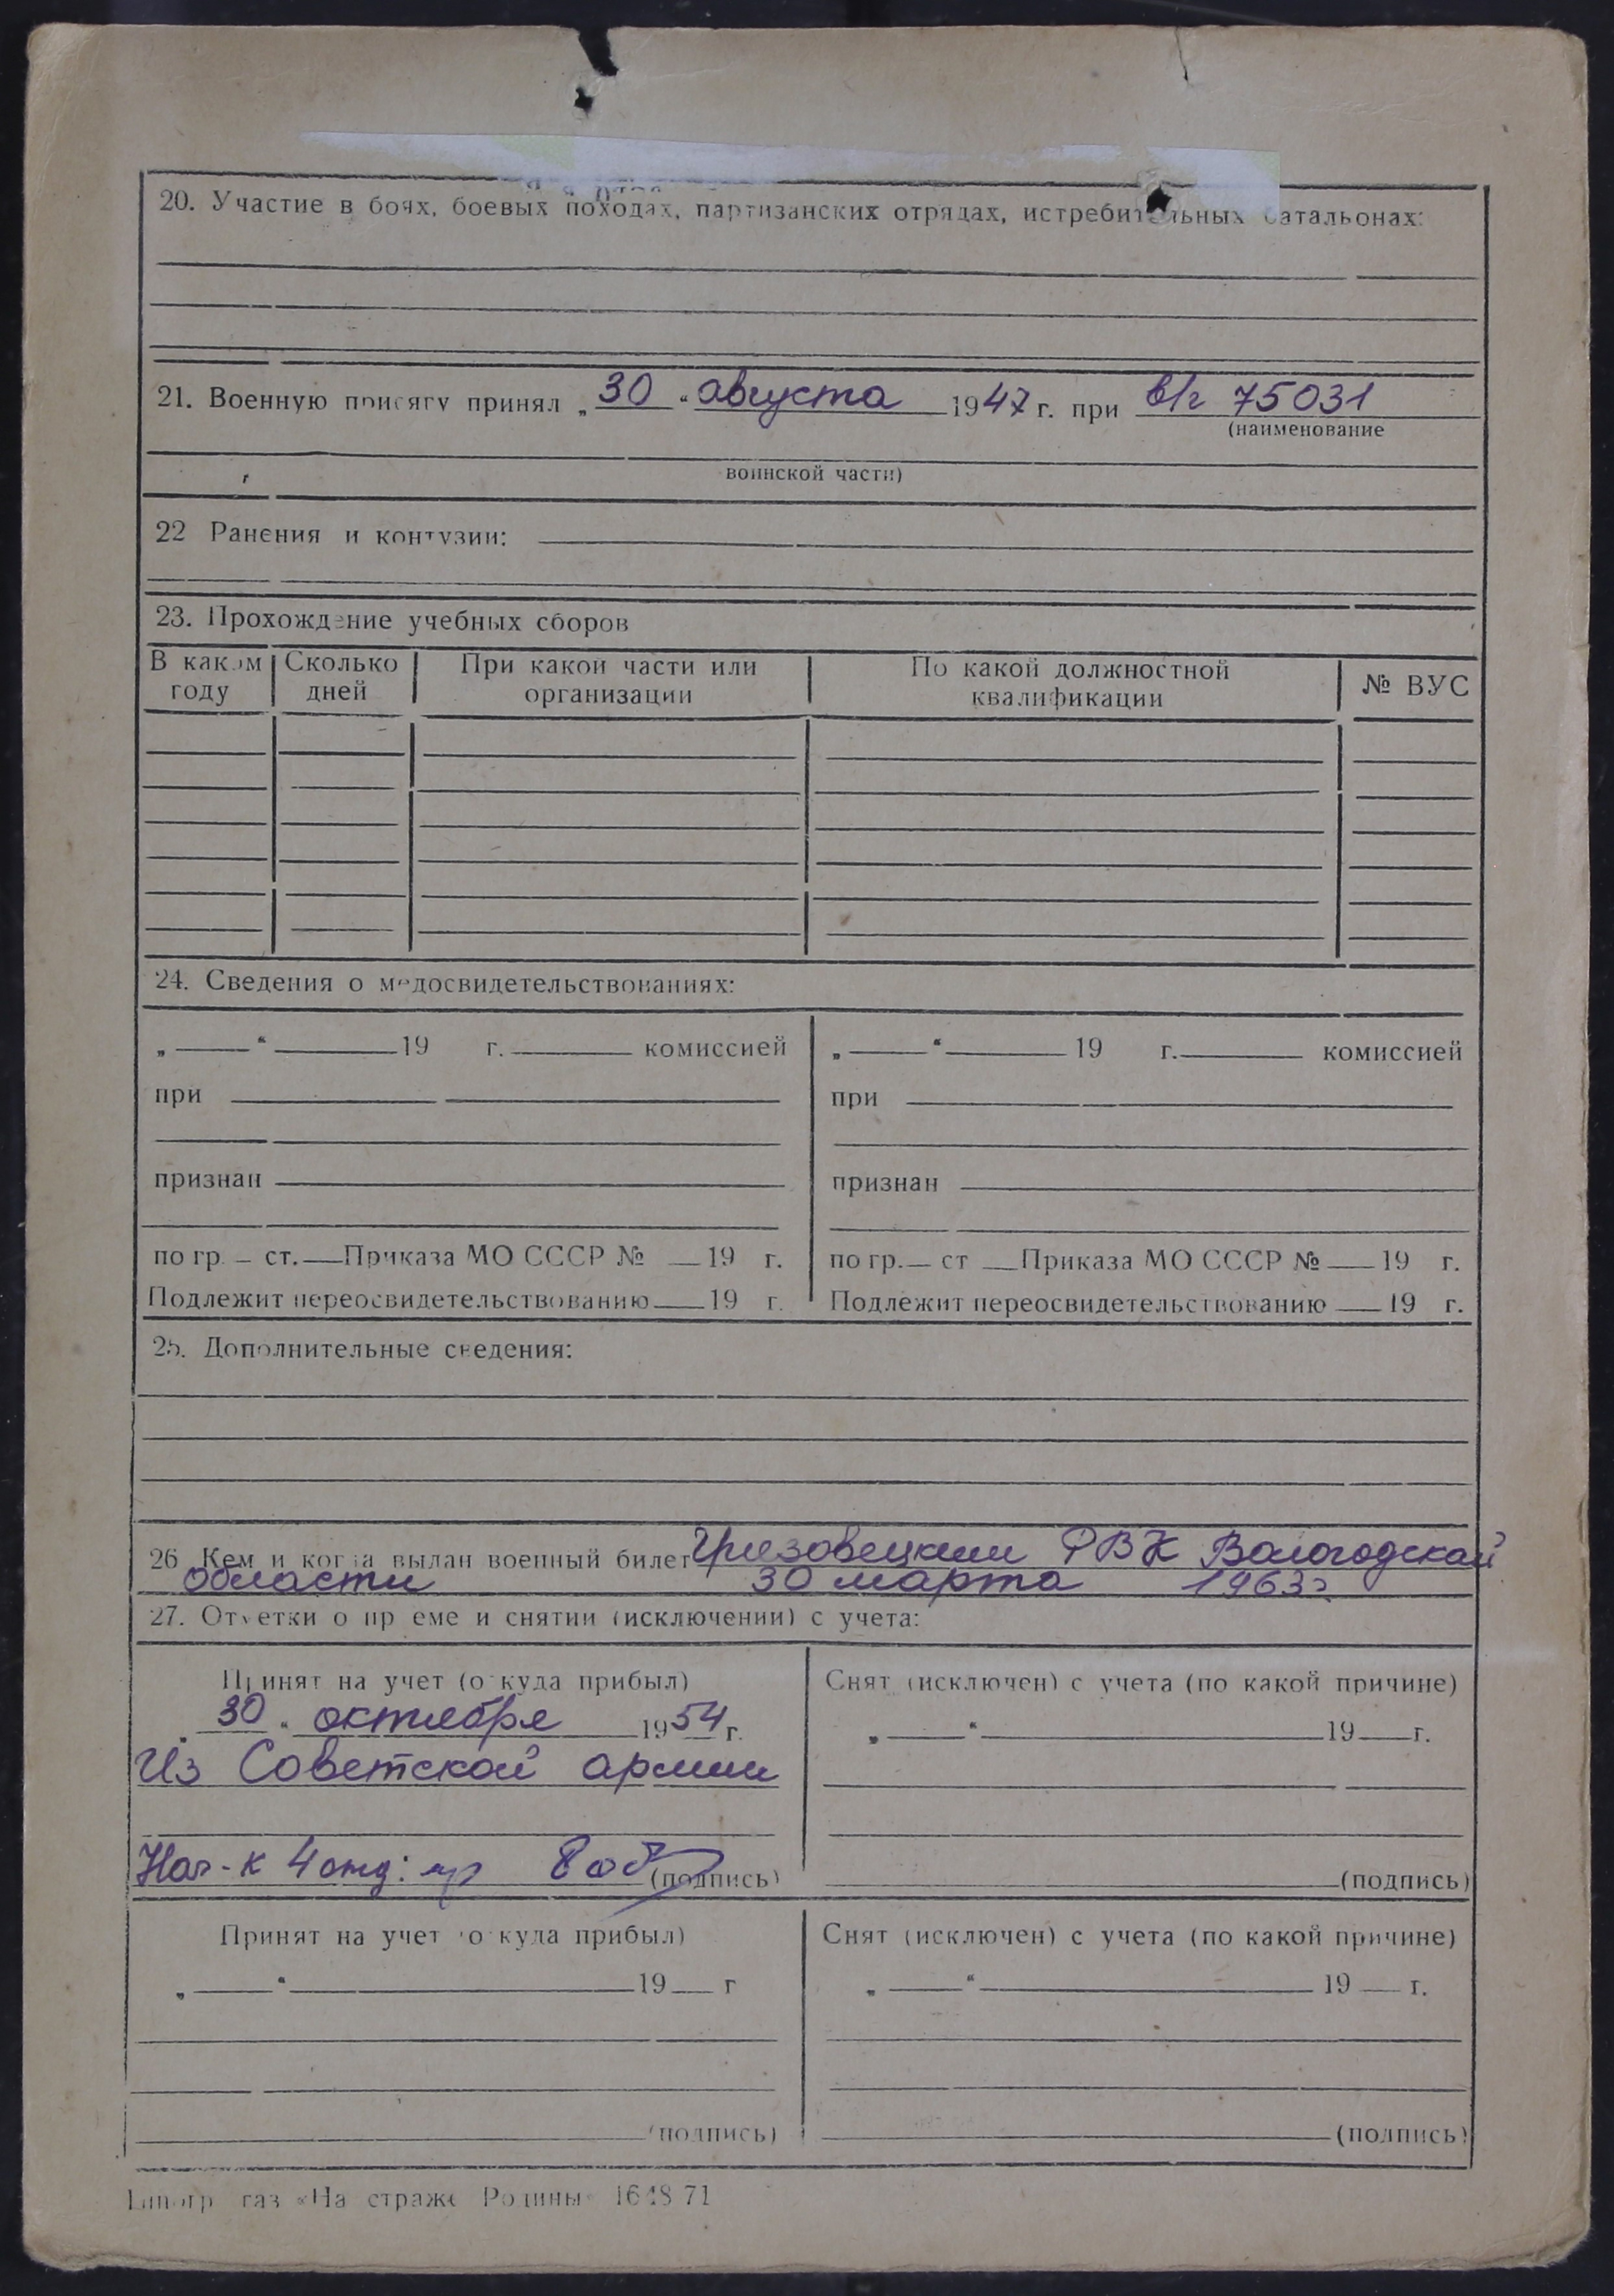 20. Участие в боях, боевых походах, партизанских отрядах, истребительных батальонах:
21. Военную присягу принял „30“ августа 1947 г. при в/г 75031
(наименование
воинской части)
22 Ранения и контузии:
23. Прохождение учебных сборов
В каком году Сколько дней При какой части или организации По какой должностной квалификации № ВУС
24. Сведения о медосвидетельствованиях:
„ “ 19 г. комиссией „ “ 19 г. комиссией
при при
признан признан
по гр. ст. Приказа МО СССР № 19 г. по гр. ст Приказа МО СССР № 19 г.
Подлежит переосвидетельствованию 19 г. Подлежит переосвидетельствованию 19 г.
25. Дополнительные сведения:
26 Кем и когда выдан военный билет Грязовецким РВК Вологодской
области 30 марта 1963г.
27. Отметки о приеме и снятии (исключении) с учета:
Принят на учет (откуда прибыл) Снят (исключен) с учета (по какой причине)
„30“ октября 1954 г. „ “ 19 г.
Из Советской армии
Нач-к 4 отд: (подпись) (подпись)
Принят на учет (откуда прибыл) Снят (исключен) с учета (по какой причине)
„ “ 19 г „ “ 19 г.
(подпись) (подпись)
Типогр газ «На страже Родины» 1648 71